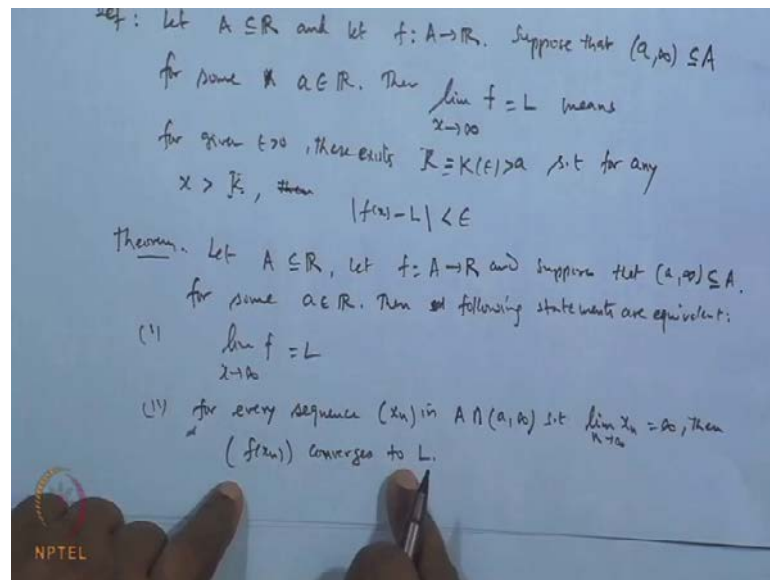 Def : Let A ⊆ R and let f: A→R. Suppose that (a,∞) ⊆ A
for some a ∈ R. Then lim f = L means
x→∞
for given ε>0, there exists K = K(ε)>a s.t for any
x > K,
|f(x)-L| < ε
Theorem. Let A ⊆ R, let f: A→R and suppose that (a,∞) ⊆ A.
for some a ∈ R. Then following statements are equivalent:
(i) lim f = L
x→∞
(ii) for every sequence (xn) in A ∩ (a,∞) s.t lim xn = ∞, then
n→∞
(f(xn)) converges to L.
NPTEL